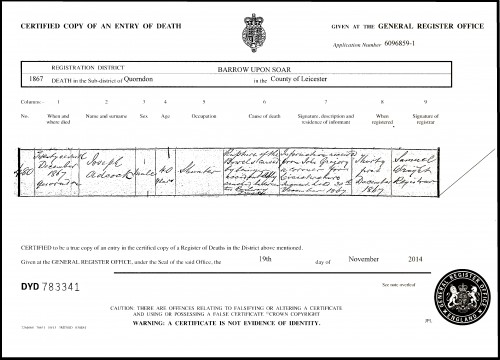 CERTIFIED COPY OF AN ENTRY OF DEATH
GIVEN AT THE GENERAL REGISTER OFFICE
Application Number 6096859-1
REGISTRATION DISTRICT BARROW UPON SOAR
1867 DEATH in the Sub-district of Quorndon in the County of Leicester
Columns:- 1 2 3 4 5 6 7 8 9
No. When and where died Name and surname Sex Age Occupation Cause of death Signature, description and residence of informant When registered Signature of registrar
December 1867 Quorndon
Joseph Adcock
Male
40 years
Shunter
Rupture of the Bowels caused by being accidentally
Information received from John Gregory Coroner for Leicestershire Inquest held 30th December 1867
Thirty first December 1867
Samuel Wright Registrar
CERTIFIED to be a true copy of an entry in the certified copy of a Register of Deaths in the District above mentioned.
Given at the GENERAL REGISTER OFFICE, under the Seal of the said Office, the 19th day of November 2014
DYD 783341
See note overleaf
CAUTION: THERE ARE OFFENCES RELATING TO FALSIFYING OR ALTERING A CERTIFICATE
AND USING OR POSSESSING A FALSE CERTIFICATE ©CROWN COPYRIGHT
WARNING: A CERTIFICATE IS NOT EVIDENCE OF IDENTITY.
GENERAL REGISTER OFFICE
ENGLAND